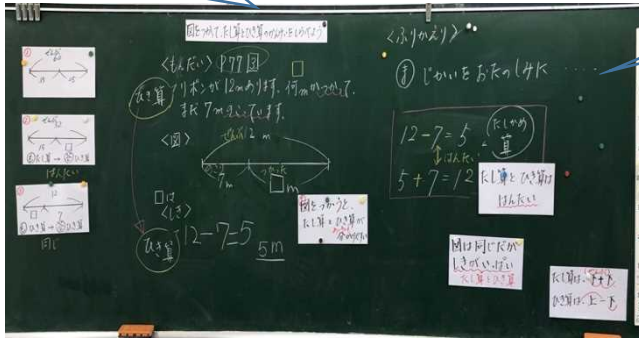 図をつかって、たし算とひき算のかんけいをしらべよう
<もんだい> P77 図
ひき算
リボンが12mあります。何mかつかって、
まだ7mのこっています。
<図>
ぜんぶ12m
のこり 7m
つかった □m
□は
<しき>
ひき算
12-7=5
5m
図をつかうと、
たし算とひき算が
<ふりかえり>
じかいをおたのしみに ・・・・
12-7=5
はんたい
5+7=12
たしかめ算
たし算とひき算は
はんたい
図は同じだが
しきがいっぱい
たし算とひき算
たし算は…下+下
ひき算は…上-下
はんたい
12
7
同じ